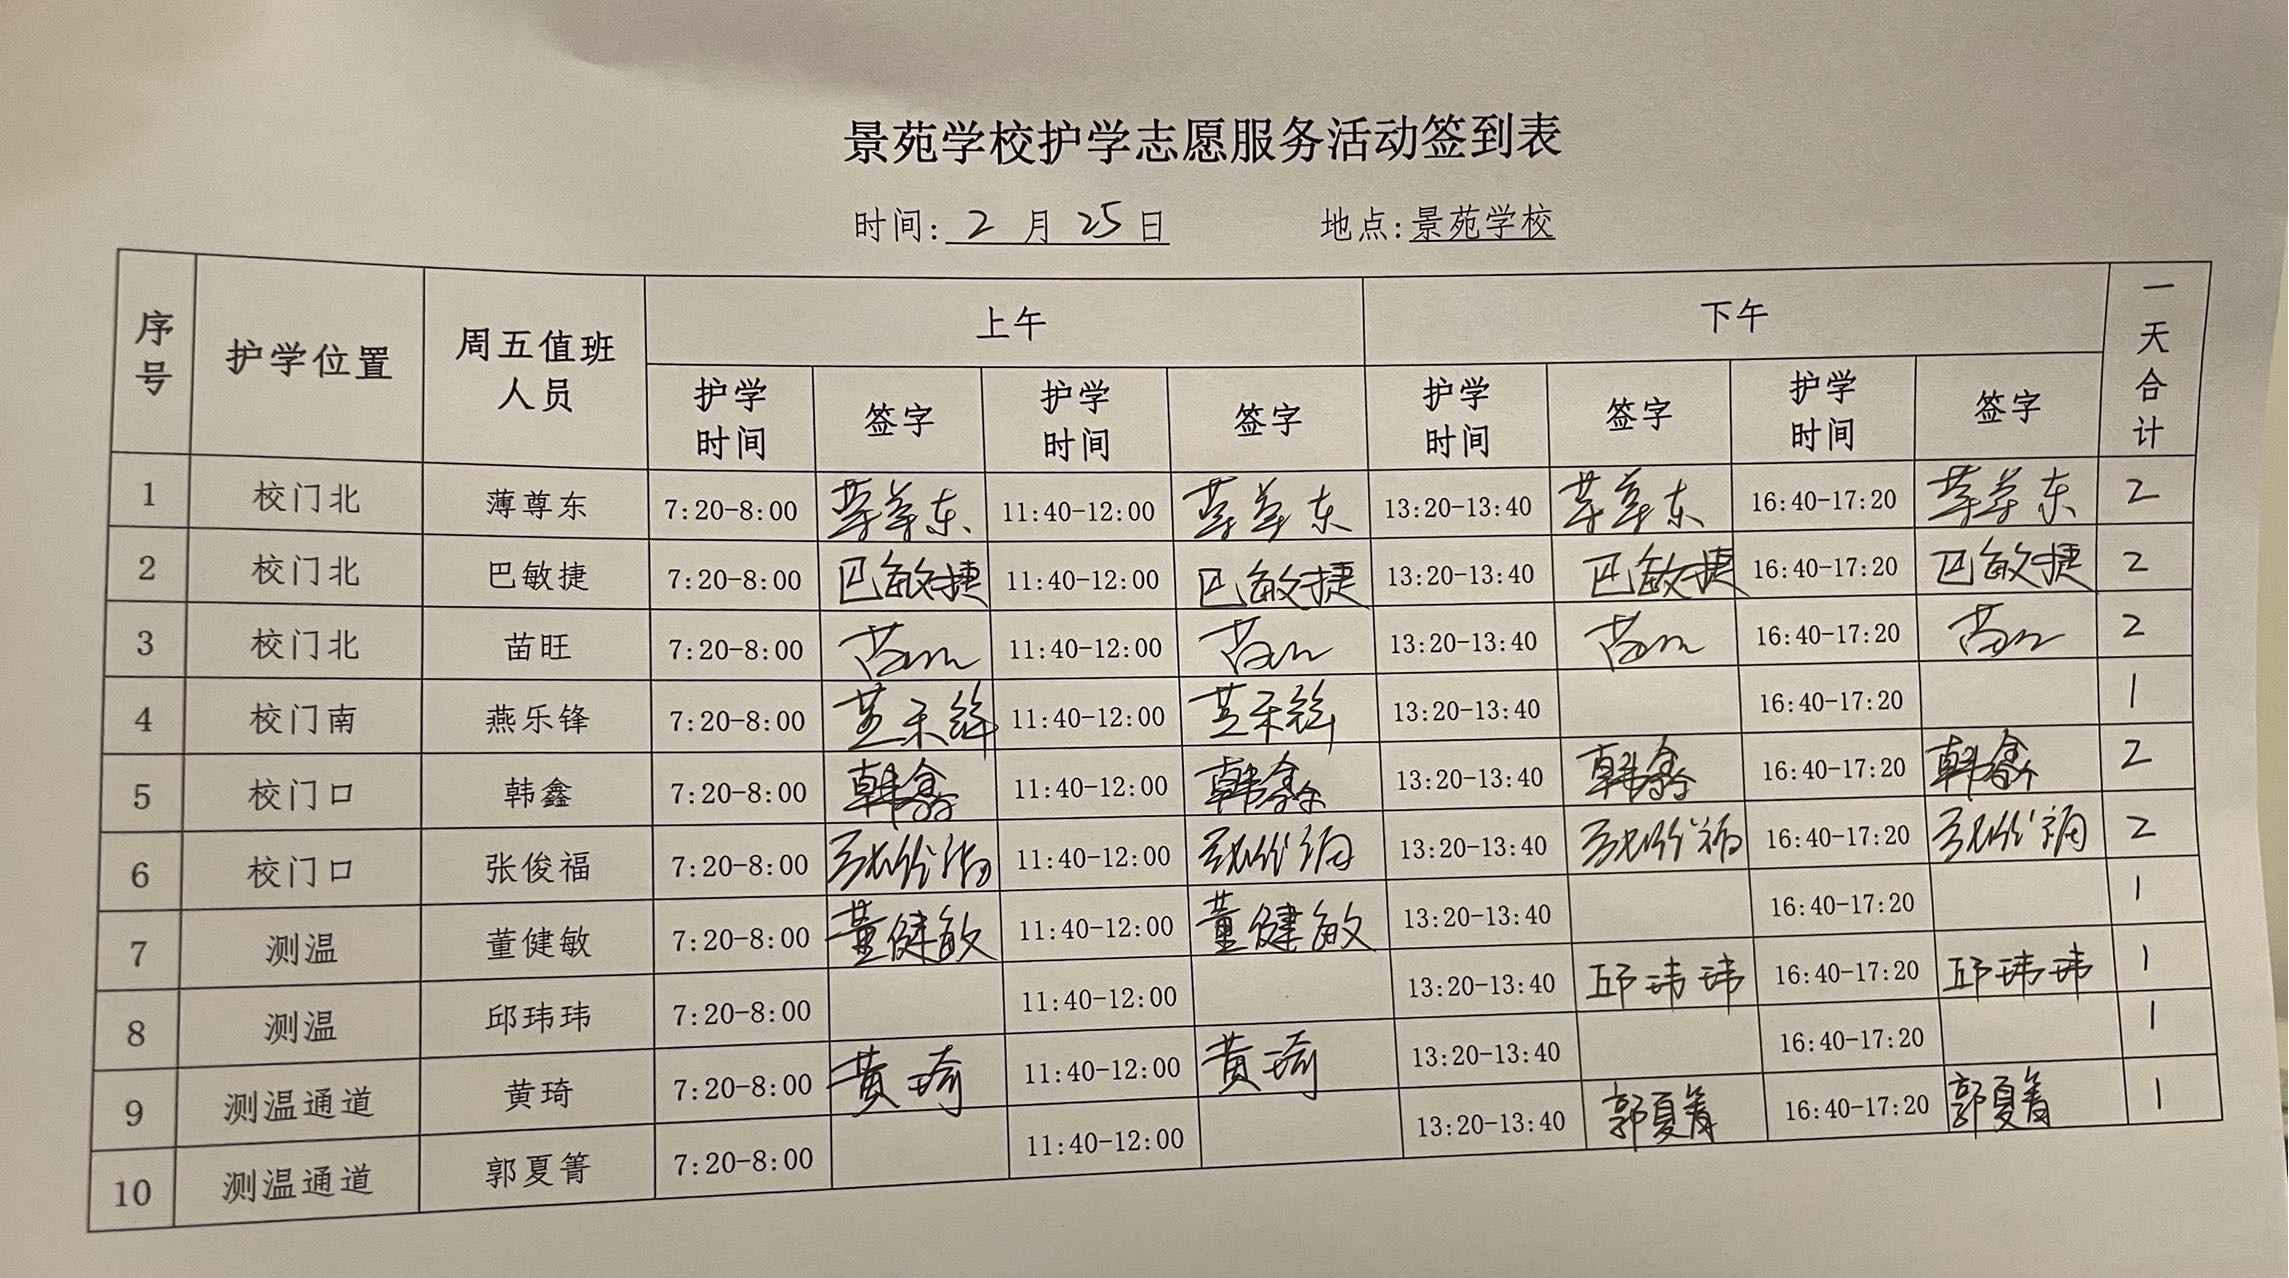 景苑学校护学志愿服务活动签到表
时间: 2 月 25 日 地点:景苑学校
序号 护学位置 周五值班人员 上午 下午 一天合计
护学时间 签字 护学时间 签字 护学时间 签字 护学时间 签字
1 校门北 薄尊东 7:20-8:00 薄尊东 11:40-12:00 薄尊东 13:20-13:40 薄尊东 16:40-17:20 薄尊东 2
2 校门北 巴敏捷 7:20-8:00 巴敏捷 11:40-12:00 巴敏捷 13:20-13:40 巴敏捷 16:40-17:20 巴敏捷 2
3 校门北 苗旺 7:20-8:00 苗旺 11:40-12:00 苗旺 13:20-13:40 苗旺 16:40-17:20 苗旺 2
4 校门南 燕乐锋 7:20-8:00 燕乐锋 11:40-12:00 燕乐锋 13:20-13:40 16:40-17:20 1
5 校门口 韩鑫 7:20-8:00 韩鑫 11:40-12:00 韩鑫 13:20-13:40 韩鑫 16:40-17:20 韩鑫 2
6 校门口 张俊福 7:20-8:00 张俊福 11:40-12:00 张俊福 13:20-13:40 张俊福 16:40-17:20 张俊福 2
7 测温 董健敏 7:20-8:00 董健敏 11:40-12:00 董健敏 13:20-13:40 16:40-17:20 1
8 测温 邱玮玮 7:20-8:00 11:40-12:00 13:20-13:40 邱玮玮 16:40-17:20 邱玮玮 1
9 测温通道 黄琦 7:20-8:00 黄琦 11:40-12:00 黄琦 13:20-13:40 16:40-17:20 1
10 测温通道 郭夏箐 7:20-8:00 11:40-12:00 13:20-13:40 郭夏箐 16:40-17:20 郭夏箐 1